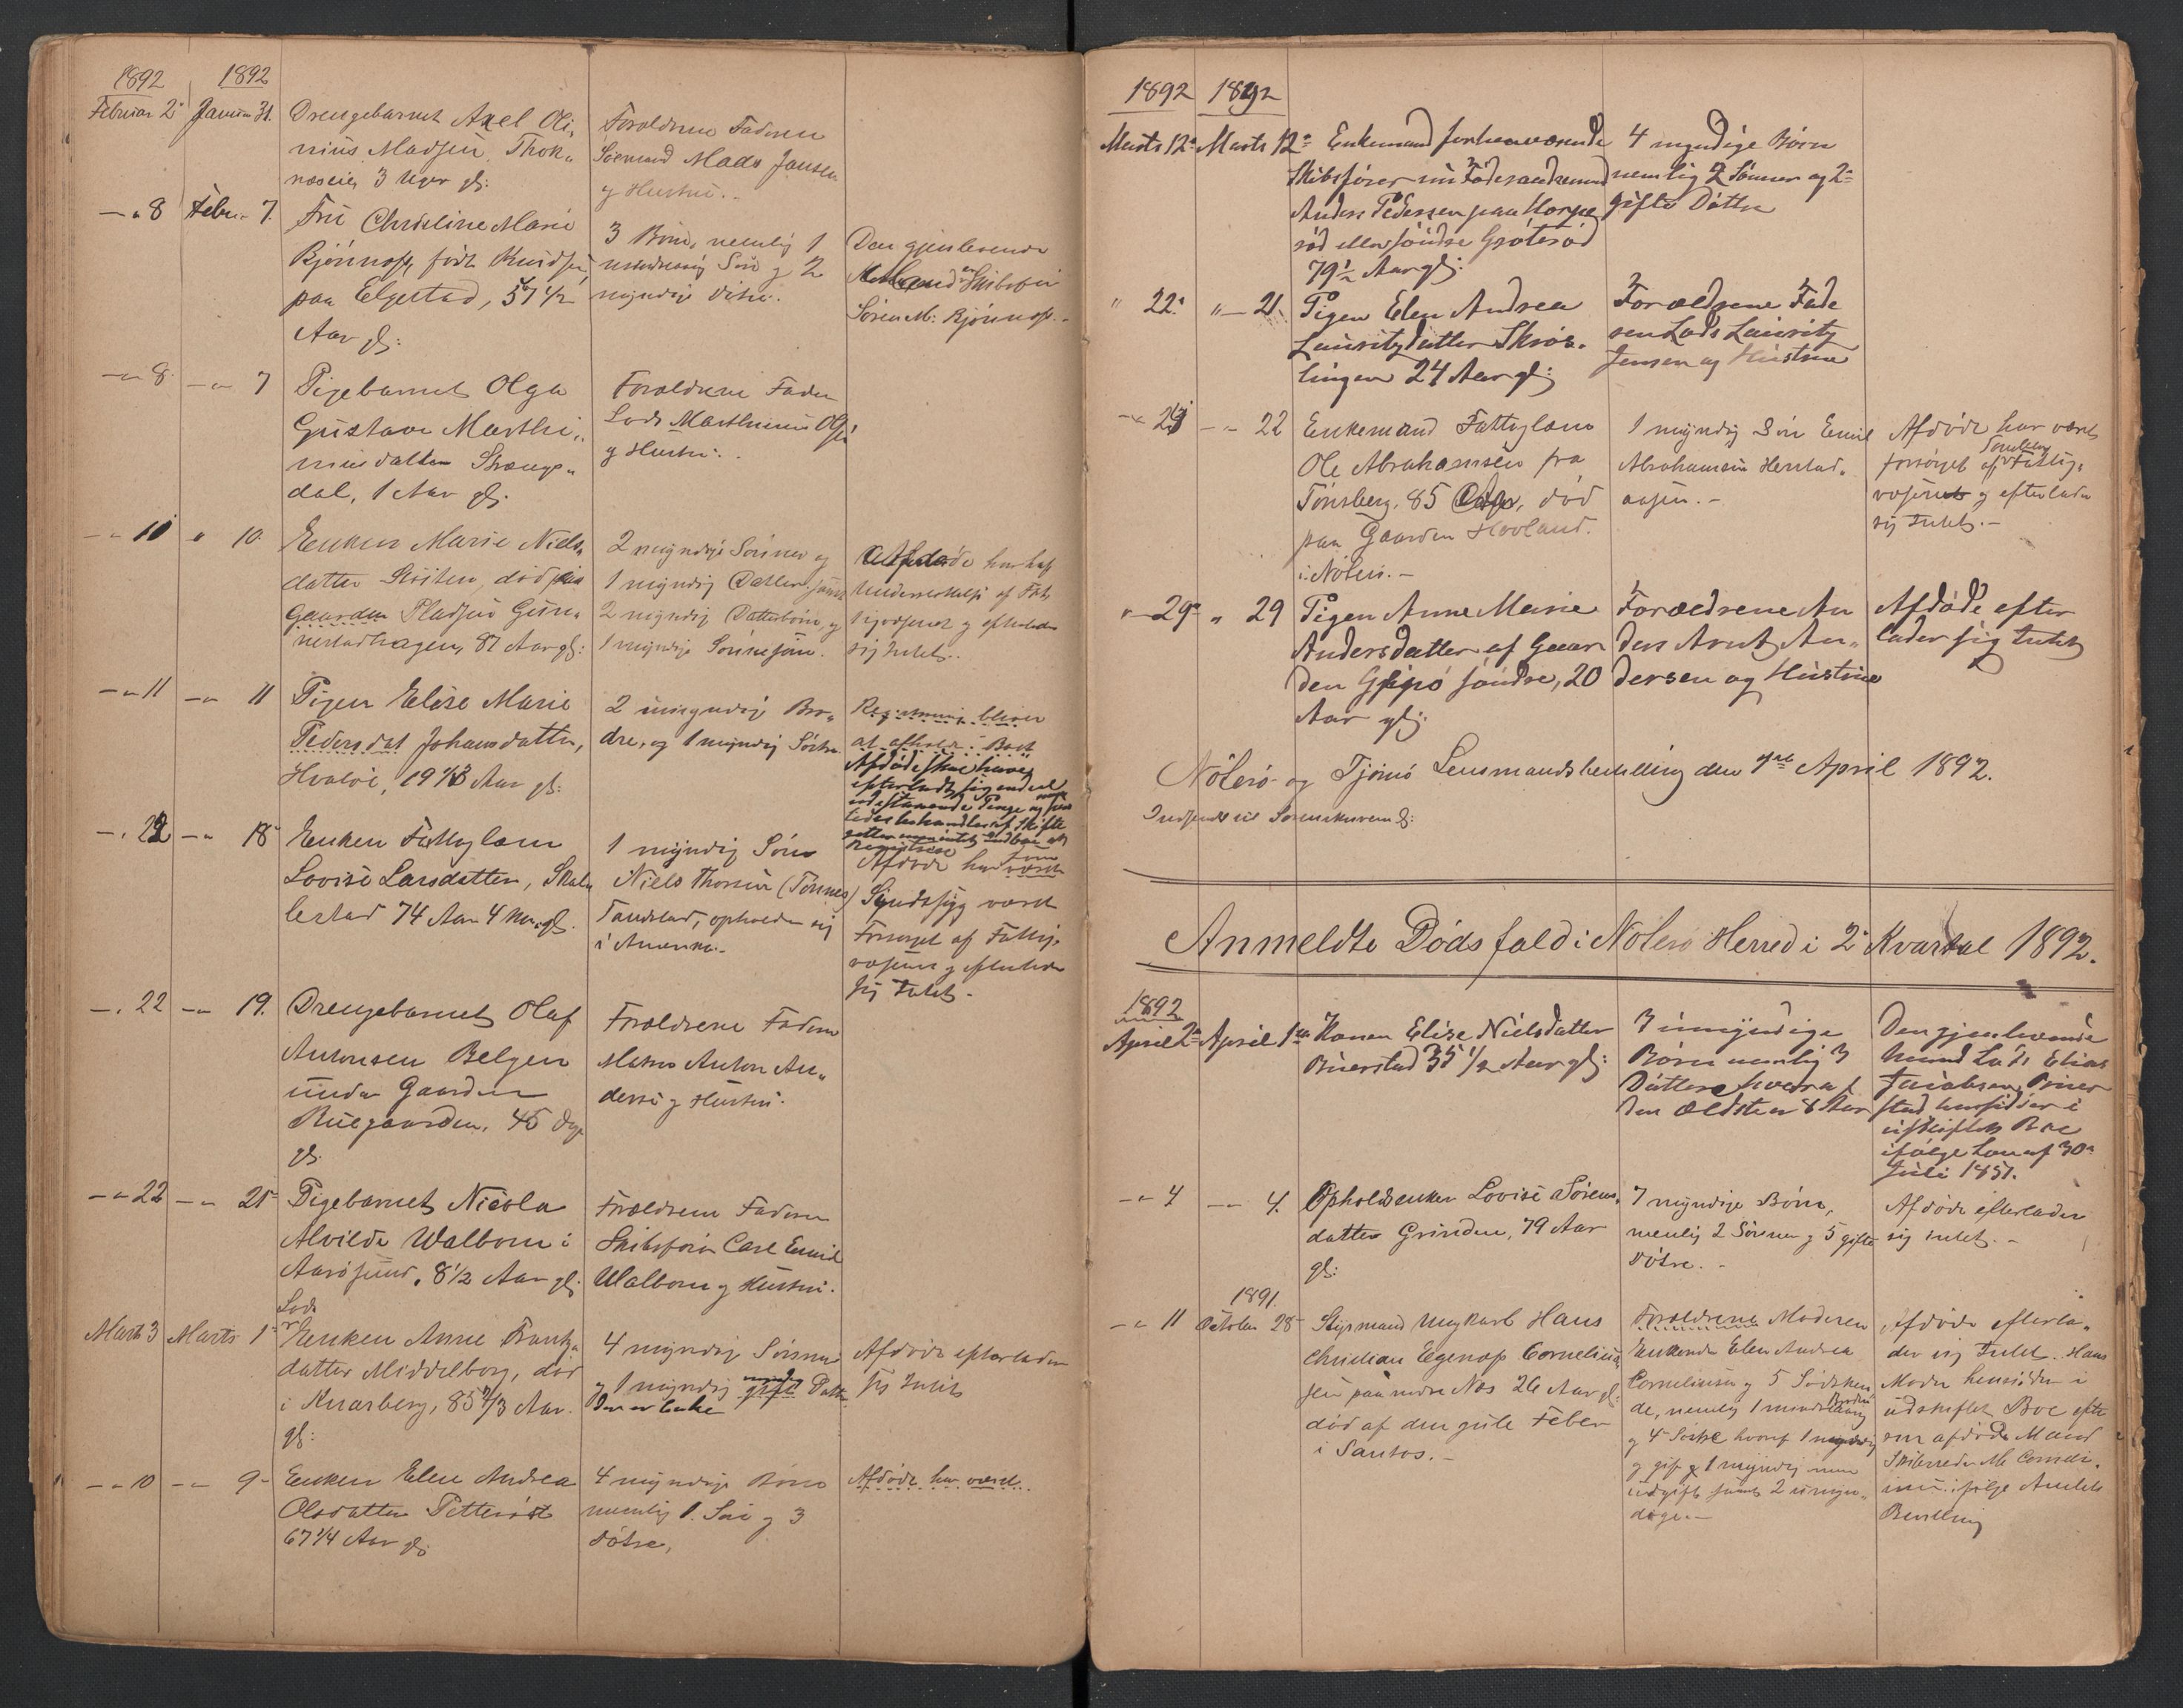 1892 1892
Februar 2 Januar 31. Drengebarnet Axel Oli-
nius Madsen, Thok-
næseie, 3 Uger gl:
Forældrene Faderen
Sømand Mads Jansen
og Hustru.
-"- 8 Febr. 7. Fru Christine Marie
Bjönness, födt Knudsen
paa Elgestad, 57 1/2
Aar gl:
3 Börn, nemlig 1
Sön og 2
myndige Döttre.
Den gjenlevende
Mand er Skibsförer
Sören M. Bjönness.
-"- 8 -"- 7 Pigebarnet Olga
Gustava Marthi-
niusdatter
dal, 1 Aar gl:
Forældrene Fader
Lods Marthinius Olsen
og Hustru.
-"- 10 " 10. Enken Marie Niels-
datter Stöiten, död paa
Gaarden Pladsen Gun-
nestadhagen, 87 Aar gl:
2 myndige Sönner og
1 myndig Datter samt
2 myndig Datterbörn og
1 myndige Sönnesön.
Afdöde har havt
Understöttelse af Fat-
tigvæsenet og efterlader
sig Intet.
-"- 11 -"- 11 Pigen Elise Marie
Pedersdat Johansdatter,
Hvalöe, 19 1/3 Aar gl:
2 umyndig Brö-
dre, og 1 myndig Söster
Registrering bliver
at afholde i Boet
Afdöde skal have
efterladt sig endeel
udestaaende Penge og
behandles af Skifte
retten
registrere
-"- 22 -"- 18 Enken Fattiglem
Lovise Larsdatter, Skal-
lestad 74 Aar 4 Mdr. gl.
1 myndig Sön
Niels Thorsen (Tönnes)
Tandstad, opholder sig
i Amerika.
Afdöde har som
Sindssyg været
Forsörget af Fattig-
væsenet og efterlader
sig Intet.
-"- 22 -"- 19. Drengebarnet Olaf
Antonsen Belgen
under Gaarden
Buegaarden, 45 Dage
gl:
Forældrene Faderen
Matros Anton An-
dersen og Hustru.
-"- 22 -"- 21 Pigebarnet Nicola
Alvilde Walborn i
Aarösund, 8 1/2 Aar gl:
Forældrene Faderen
Skibsförer Carl Emil
Walborn og Hustru.
Marts 3 Marts 1 Lods
Enken Anne Frants-
datter Middelborg, död
i Knarberg, 85 1/3 Aar
gl:
4 myndig Sönner
og 1 myndig gift Datter
der er Enke
Afdöde efterlader
sig Intet
-"- 10 -"- 9 Enken Elen Andrea
Olsdatter Petteröd
67 1/4 Aar gl:
4 myndige Börn
nemlig 1 Sön og 3
Döttre,
Afdöde har været
1892 1892
Marts 12 Marts 12 Enkemand forhenværende
Skibsförer nu Föderaadsmand
Anders Pedersen paa Horpe-
röd eller söndre Gröteröd
79 1/2 Aar gl:
4 myndige Börn
nemlig 2 Sönner og 2
gifte Döttre
" 22 "- 21. Pigen Elen Andrea
Lauritzdatter Skrös-
lingen 24 Aar gl:
Forældrene Fade
ren Lods Lauritz
Jensen og Hustrue
-"- 23 -"- 22 Enkemand Fattiglem
Ole Abrahamsen fra
Tönsberg, 85 Aar, död
paa Gaarden Hovland
i Nöterö.
1 myndig Sön Emil
Abrahamsen Herstad-
aasen.
Afdöde har været
forsörget af Tönsberg Fattig-
væsen og efterlader
sig Intet.
" 29 " 29 Pigen Anne Marie
Andersdatter af Gaar
den Gipö söndre, 20
Aar gl:
Forældrene An
ders Arnt An-
dersen og Hustrue
Afdöde efter
lader sig Intet
Nöterö og Tjömö Lensmandsbestilling den 7de April 1892.
Indsendt til Sorenskriveren
Anmeldte Dödsfald i Nöterö Herred i 2 Kvartal 1892.
1892
April 2 April 1 Konen Elise Nielsdatter
Buerstad 35 1/2 Aar gl:
3 umyndige
Börn nemlig 3
Döttre hvoraf
den ældste er 8 Aar
Den gjenlevende
Mand Lods Elias
Jacobsen Buer
stad hensidder i
uskiftet Boe
ifölge Lov af 30
Juli 1851.
-"- 4 -"- 4. Opholdsenken Lovise Sörens-
datter Grinden, 79 Aar
gl:
7 myndige Börn,
nemlig 2 Sönner og 5 gifte
Döttre.
Afdöde efterlader
sig Intet.
1891.
-"- 11 October 28 Styrmand Ungkarl Hans
Christian Egenæs Corneliu-
sen paa nedre Næs 26 Aar gl:
död af den gule Feber
i Santos.
Forældrene Moderen
Enkende Elen Andrea
Corneliusen og 5 Södsken-
de, nemlig 1 mindreaarig Broder
og 4 Söstre hvoraf 1 myndig
og gift og 1 myndig men
ugift samt 2 umyn-
dige.
Afdöde efterla-
der sig Intet. Hans
Moder hensidder i
udskiftet Boe efter
sin afdöde Mand
Skibsreder M. Corneli-
usen ifölge Amtets
Bevilling